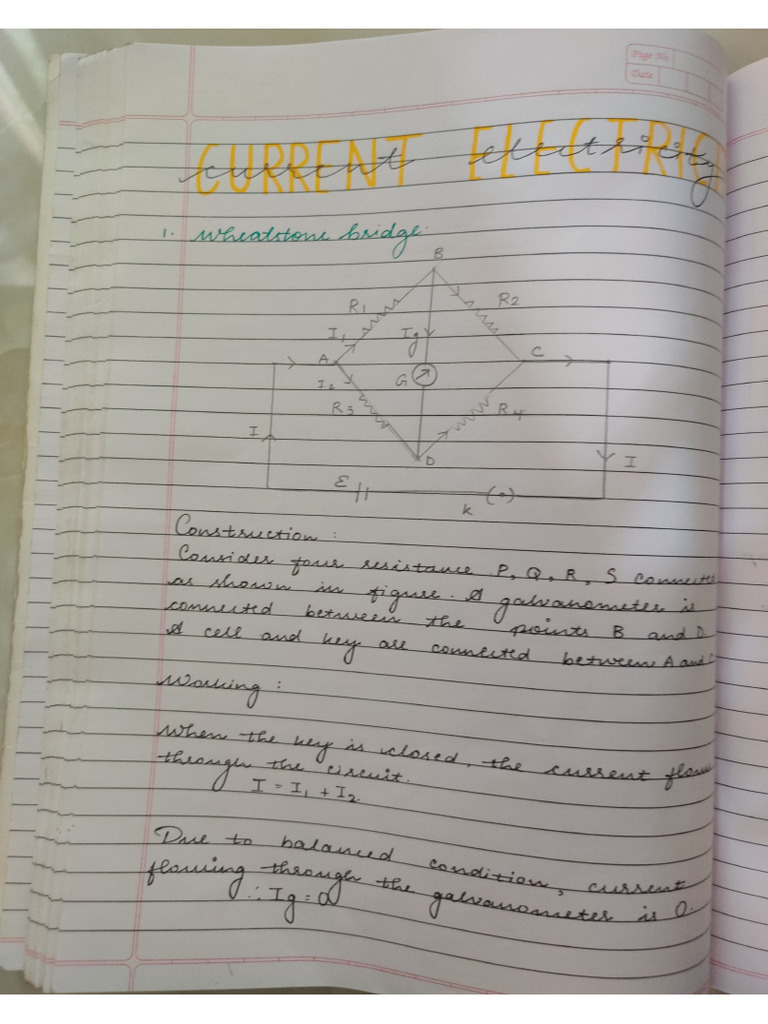 Page No.
Date
CURRENT ELECTRICI
current electricity
1. Wheatstone bridge.
B
R1
R2
I1
Ig
A
C
I2
G
R3
R4
I
D
I
ε
K
Construction :
Consider four resistance P, Q, R, S connected
as shown in figure. A galvanometer is
connected between the points B and D.
A cell and key are connected between A and C
Working :
When the key is closed, the current flows
through the circuit.
I = I1 + I2.
Due to balanced condition, current
flowing through the galvanometer is 0.
∴ Ig = 0